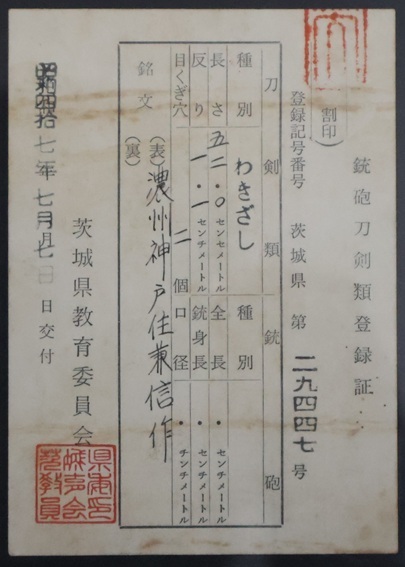 銃砲刀剣類登録証
(割印)
登録記号番号 茨城県 第 二九四四七 号
刀剣類 銃砲
種別 わきざし 種別
長さ 五二.〇 センチメートル 全長 . センチメートル
反り 一.一 センチメートル 銃身長 . センチメートル
目くぎ穴 二 個 口径 . センチメートル
銘文
(表) 濃州神戸住兼信作
(裏)
昭和四拾七年七月 日交付
茨城県教育委員会